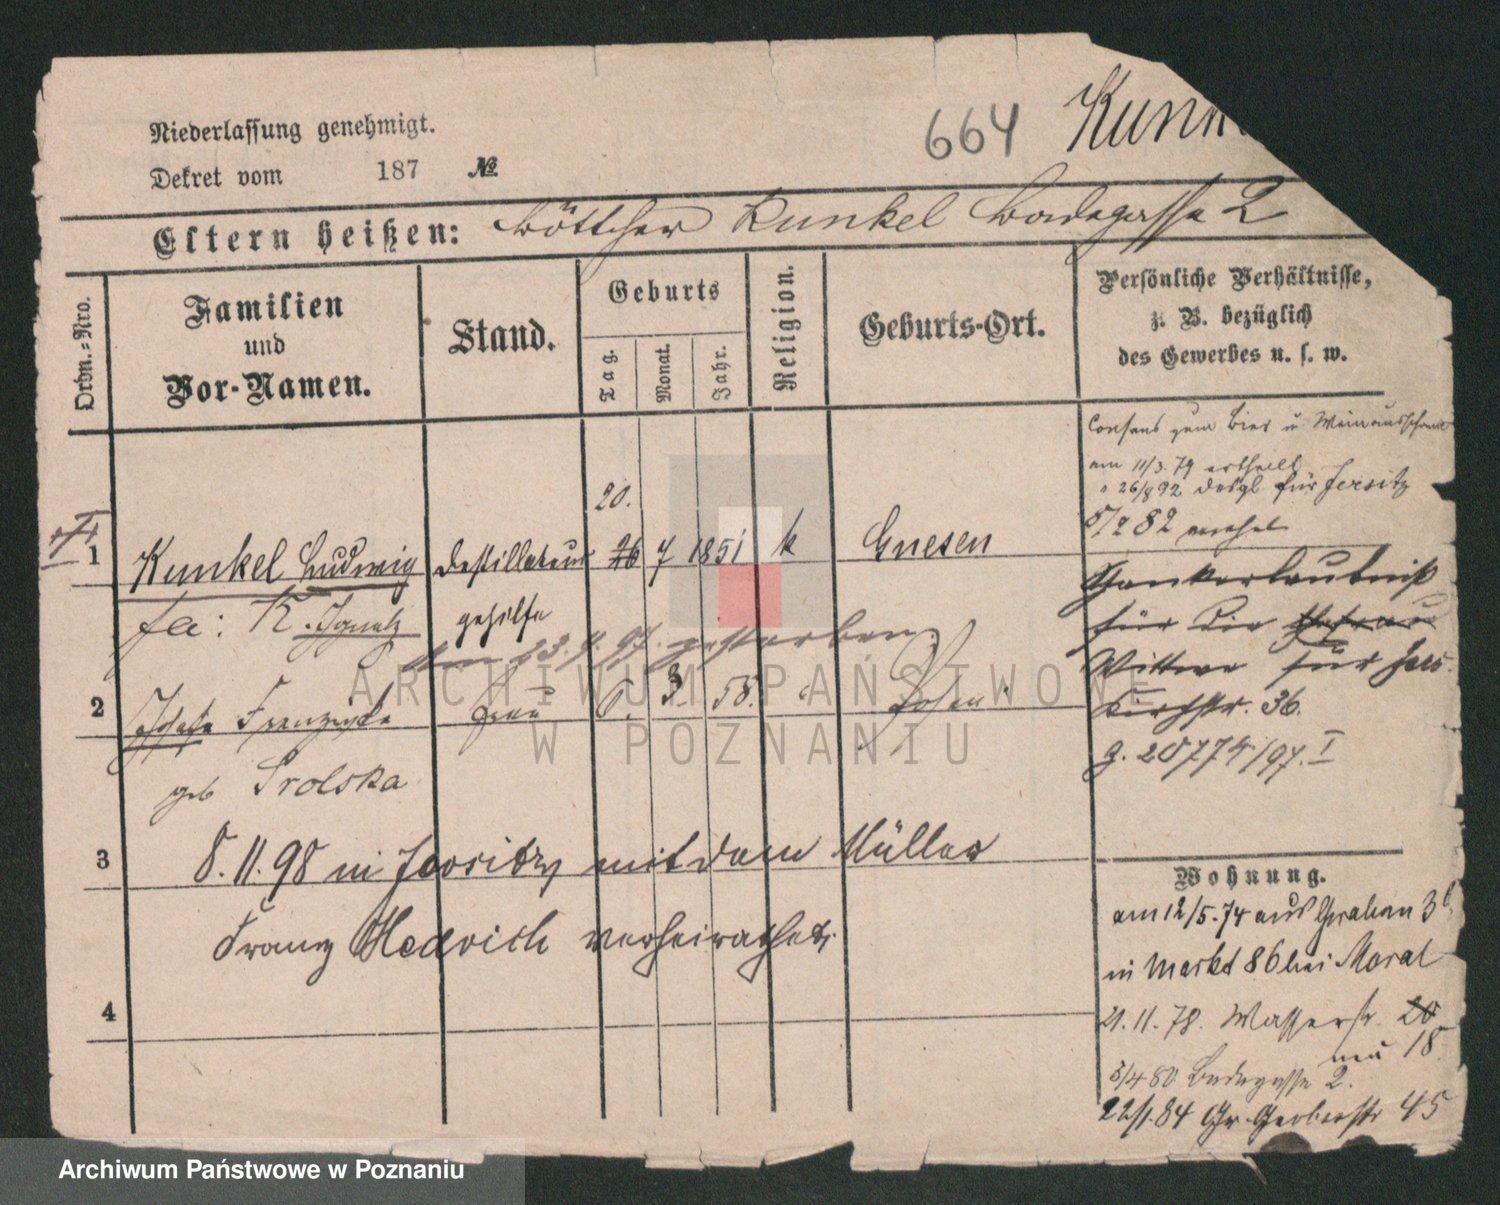 Niederlassung genehmigt.
Dekret vom 187 №
664 Kunk
Eltern heißen: Böttcher Kunkel Badegasse 2
Ordn.-Nro.
Familien
und
Vor-Namen.
Stand.
Geburts
Tag.
Monat.
Jahr.
Religion.
Geburts-Ort.
Persönliche Verhältnisse,
z. B. bezüglich
des Gewerbes u. s. w.
Consens zum Bier u Weinausschank
am 11/3. 79 ertheilt
" 26/8 92 desgl für Jersitz
5/7 82
20.
1 Kunkel Ludwig Destillateur 26 7 1851 k Gnesen
Schankerlaubniß
für die Ehefrau
fa: K. Ignatz gehilfe
am 23. 9. 97. gestorben.
Wittwe für Jers.
2 Josefa Franziska Frau 6. 3. 58. " Posen
Kirchstr. 36.
g. 20774/97. I
geb Srolska
3 8. 11. 98 in Jersitz mit dem Müller
Franz Hedrich verheirathet.
4
Wohnung.
am 12/5. 74 aus Graben 3b
in Markt 86 bei Moral
21. 11. 78. Wasserstr. 20
neu 18
5/4 80 Badegasse 2.
22/1. 84 Gr. Gerberstr 45
ARCHIWUM PAŃSTWOWE
W POZNANIU
Archiwum Państwowe w Poznaniu